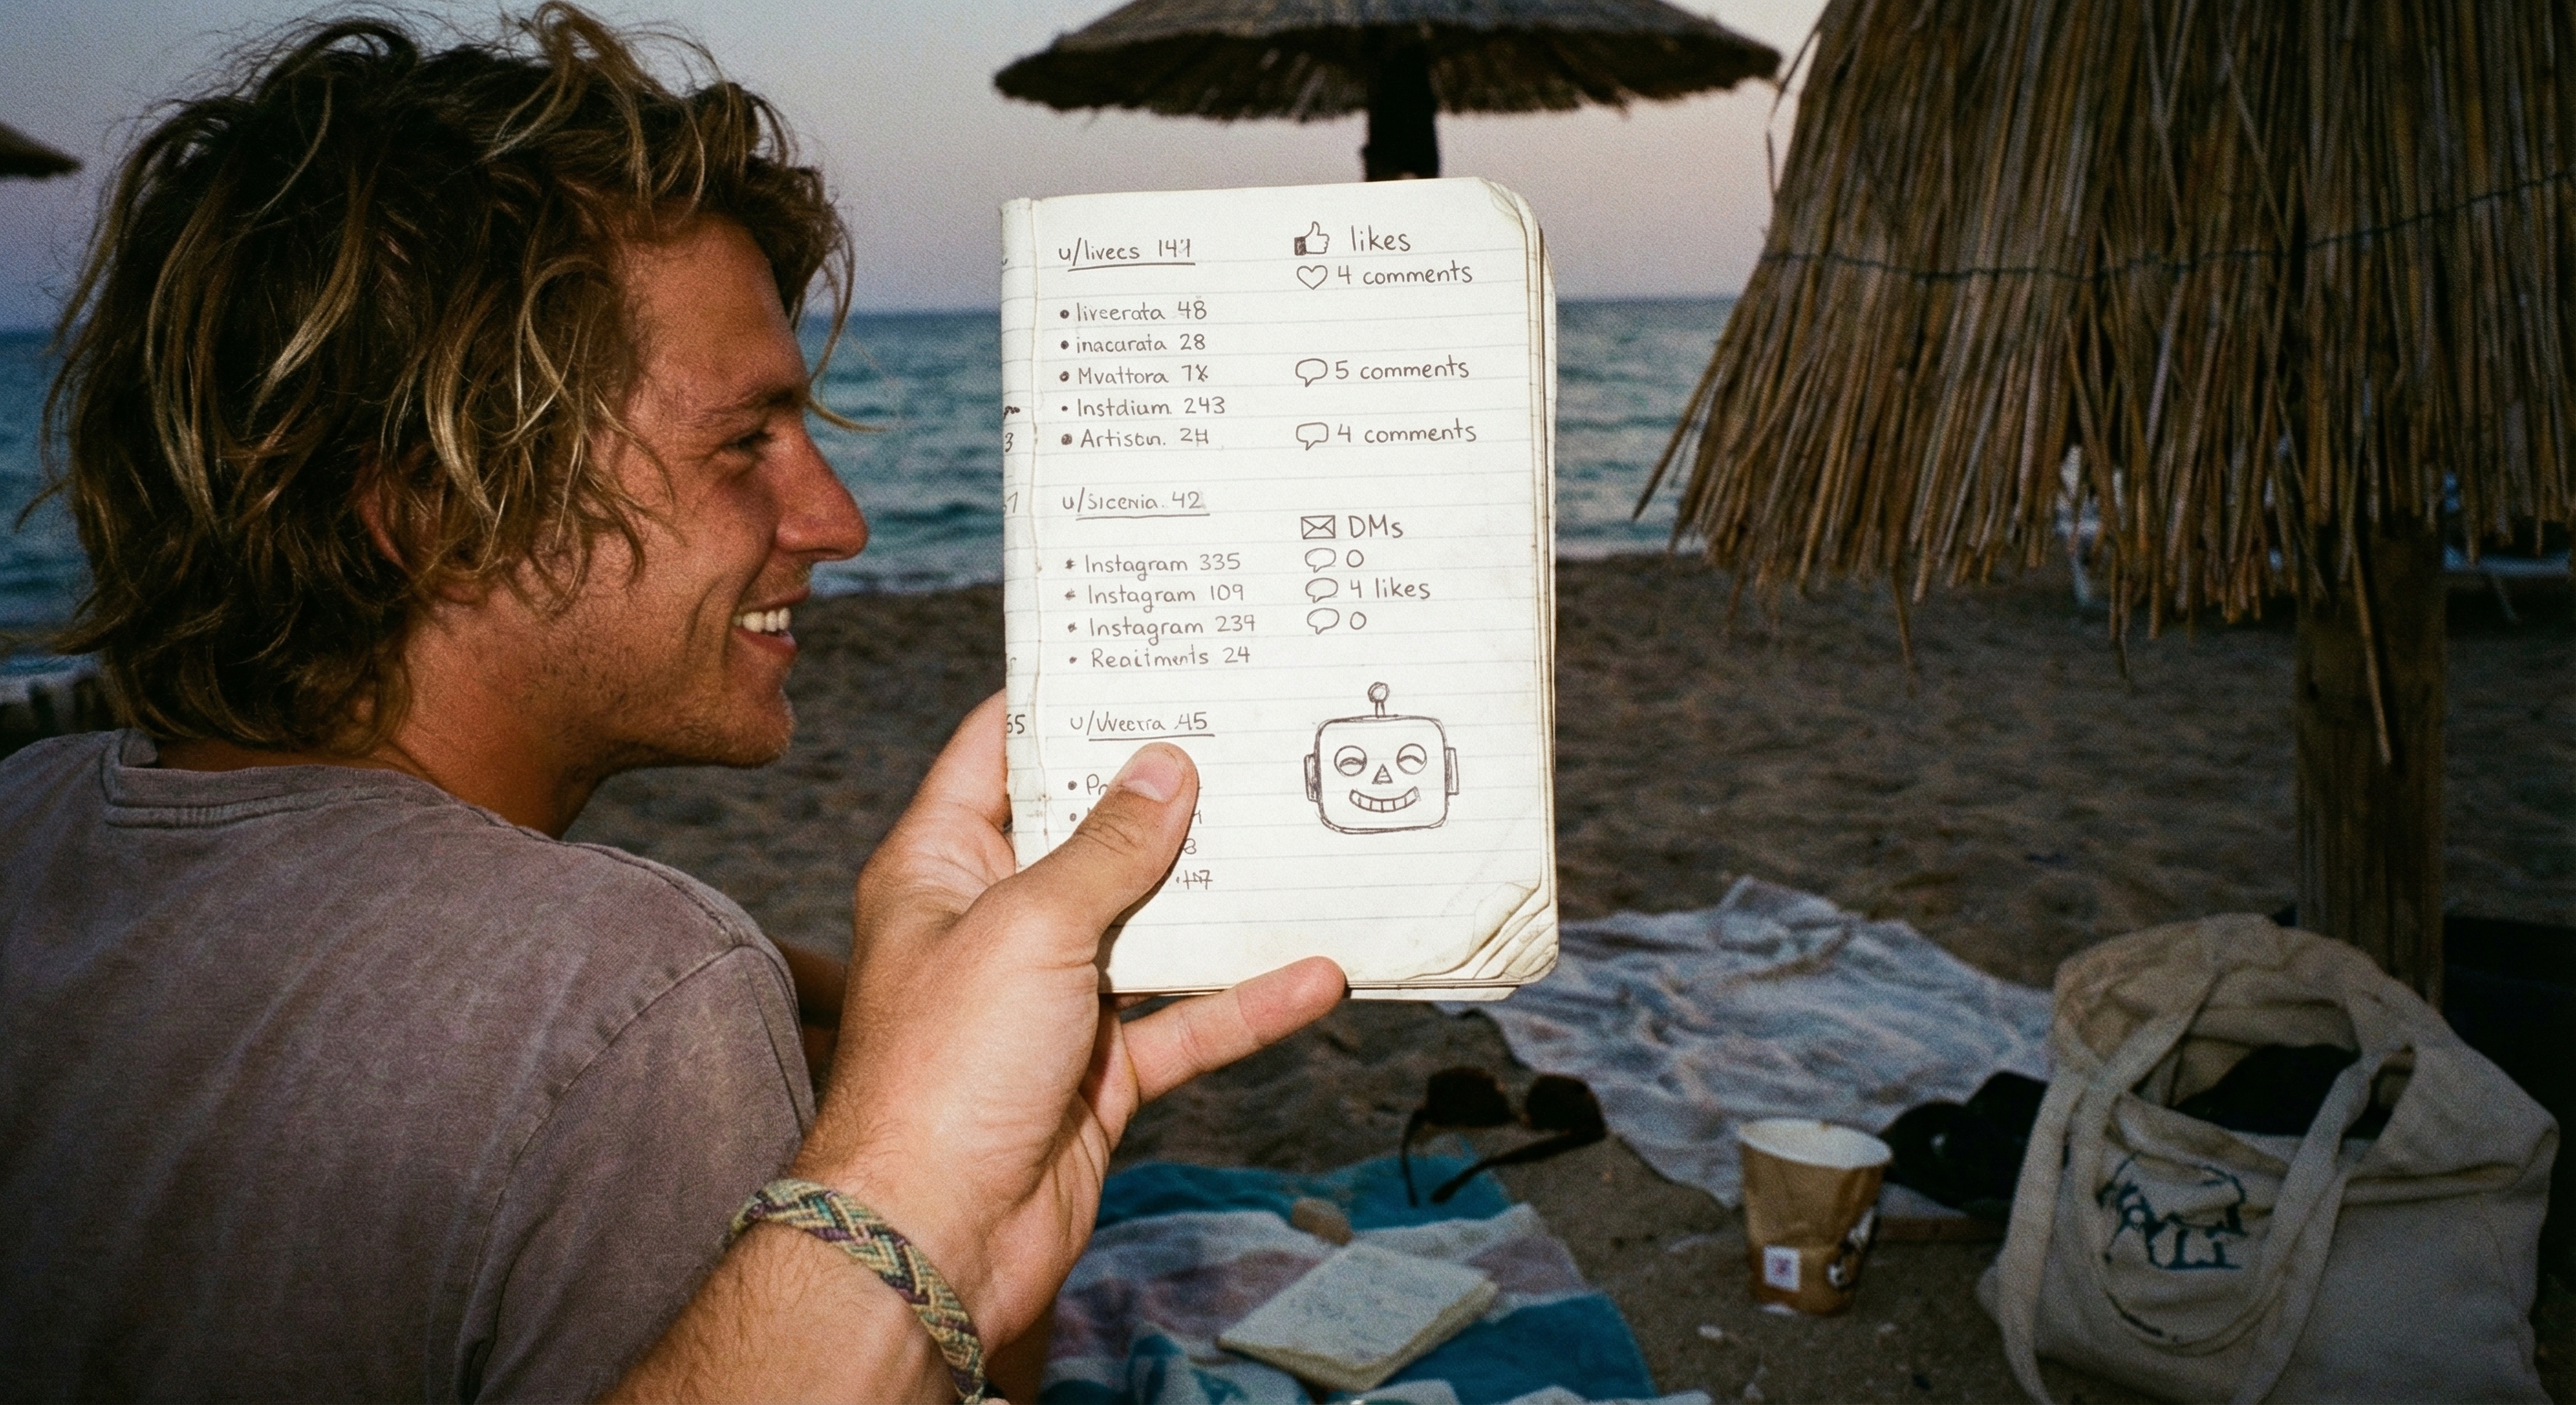 u/livecs 147
• liveerata 48
• inacurata 28
• Mvattora 7X
• Instdium 243
• Artison. 2H
u/Sicenia. 42
* Instagram 335
* Instagram 109
* Instagram 239
• Reaitments 24
u/Vvectra 45
likes
4 comments
5 comments
4 comments
DMs
0
4 likes
0